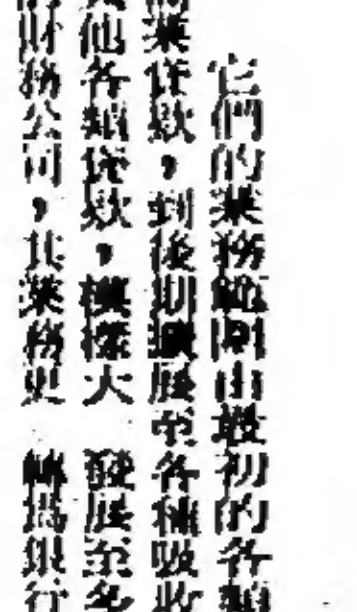 它們的業務範圍由最初的各類
業貸款，到後期擴展至各種吸收
他各類貸款，模樣大　發展至多
財務公司，其業務更　轉爲銀行